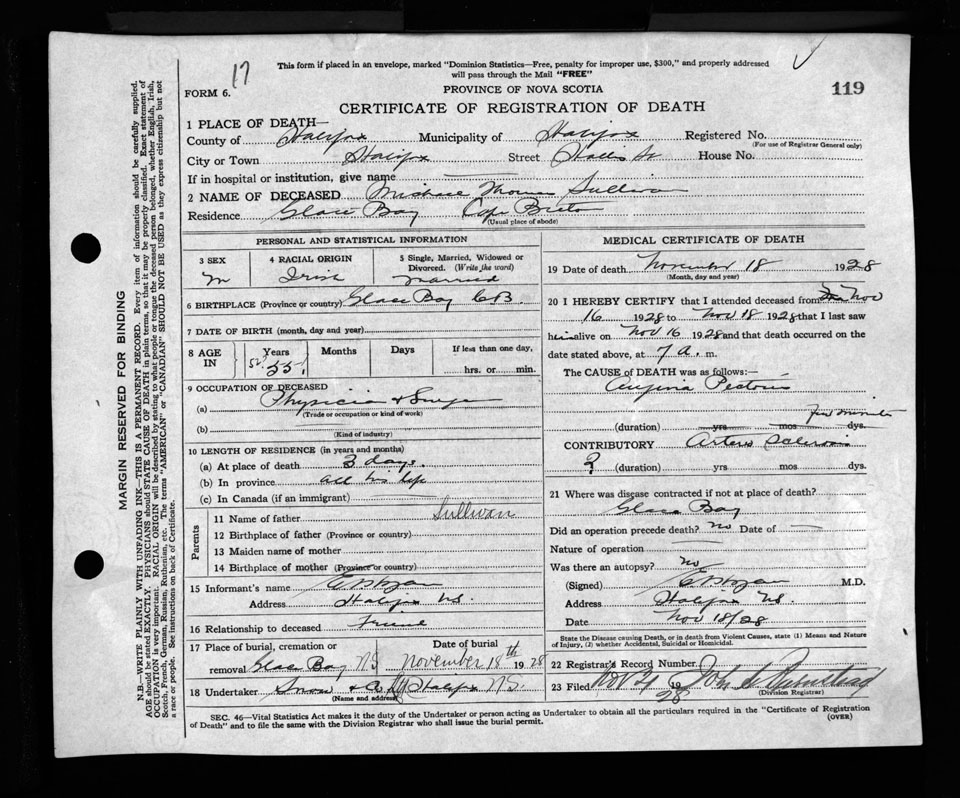 17
This form if placed in an envelope, marked "Dominion Statistics—Free, penalty for improper use, $300," and properly addressed
will pass through the Mail "FREE"
FORM 6.
PROVINCE OF NOVA SCOTIA
119
CERTIFICATE OF REGISTRATION OF DEATH
1 PLACE OF DEATH—
County of Halifax Municipality of Halifax Registered No.
(For use of Registrar General only)
City or Town Halifax Street Hollis St House No.
If in hospital or institution, give name
2 NAME OF DECEASED Michael Thomas Sullivan
Residence Glace Bay Cape Breton
(Usual place of abode)
PERSONAL AND STATISTICAL INFORMATION
3 SEX 4 RACIAL ORIGIN 5 Single, Married, Widowed or
Divorced. (Write the word)
M Irish Married
6 BIRTHPLACE (Province or country) Glace Bay C.B.
7 DATE OF BIRTH (month, day and year)
8 AGE IN Years Months Days If less than one day,
55 hrs. or min.
9 OCCUPATION OF DECEASED
(a) Physician & Surgeon
(Trade or occupation or kind of work)
(b)
(Kind of industry)
10 LENGTH OF RESIDENCE (in years and months)
(a) At place of death 3 days.
(b) In province all his life
(c) In Canada (if an immigrant)
Parents
11 Name of father Sullivan
12 Birthplace of father (Province or country)
13 Maiden name of mother
14 Birthplace of mother (Province or country)
15 Informant's name
Address Halifax NS.
16 Relationship to deceased Friend
17 Place of burial, cremation or Date of burial
removal Glace Bay N.S November 18th 1928
18 Undertaker Snow & Co Halifax N.S.
(Name and address)
MEDICAL CERTIFICATE OF DEATH
19 Date of death November 18 1928
(Month, day and year)
20 I HEREBY CERTIFY that I attended deceased from Nov
16 1928 to Nov 18 1928 that I last saw
him alive on Nov 16 1928 and that death occurred on the
date stated above, at 7 a. m.
The CAUSE OF DEATH was as follows:
Angina Pectoris
few minutes
(duration) yrs mos dys.
CONTRIBUTORY Arterio Sclerosis
? (duration) yrs mos dys.
21 Where was disease contracted if not at place of death?
Glace Bay
Did an operation precede death? no Date of
Nature of operation
Was there an autopsy? no
(Signed) M.D.
Address Halifax NS.
Date Nov 18/28
State the Disease causing Death, or in death from Violent Causes, state (1) Means and Nature
of Injury, (2) whether Accidental, Suicidal or Homicidal.
22 Registrar's Record Number
23 Filed Nov 1928 John
(Division Registrar)
SEC. 46—Vital Statistics Act makes it the duty of the Undertaker or person acting as Undertaker to obtain all the particulars required in the "Certificate of Registration
of Death" and to file the same with the Division Registrar who shall issue the burial permit.
(OVER)
MARGIN RESERVED FOR BINDING
N.B.—WRITE PLAINLY WITH UNFADING INK—THIS IS A PERMANENT RECORD. Every item of information should be carefully supplied.
AGE should be stated EXACTLY. PHYSICIANS should STATE CAUSE OF DEATH in plain terms, so that it may be properly classified. Exact statement of
OCCUPATION is very important. RACIAL ORIGIN will be described by stating to what people or tongue the deceased person belonged, whether English, Irish,
Scotch, French, German, Russian, Ruthenian, etc. The terms "AMERICAN" or "CANADIAN" SHOULD NOT BE USED as they express citizenship but not
a race or people. See instructions on back of Certificate.